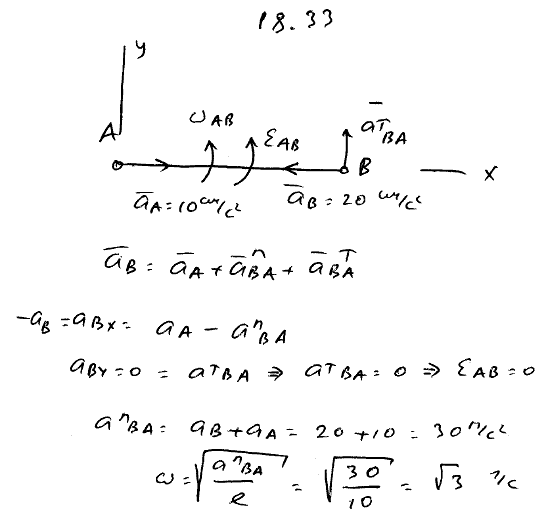 18.33
y
ω AB
ε AB
a̅ᵀ BA
A
B
x
a̅ A = 10 см/с²
a̅ B = 20 см/с²
a̅ B = a̅ A + a̅ⁿ BA + a̅ᵀ BA
-a B = a Bx = a A - aⁿ BA
a BY = 0 = aᵀ BA ⇒ aᵀ BA = 0 ⇒ ε AB = 0
aⁿ BA = a B + a A = 20 + 10 = 30 м/с²
ω = √(aⁿ BA / ℓ) = √(30 / 10) = √3 1/с